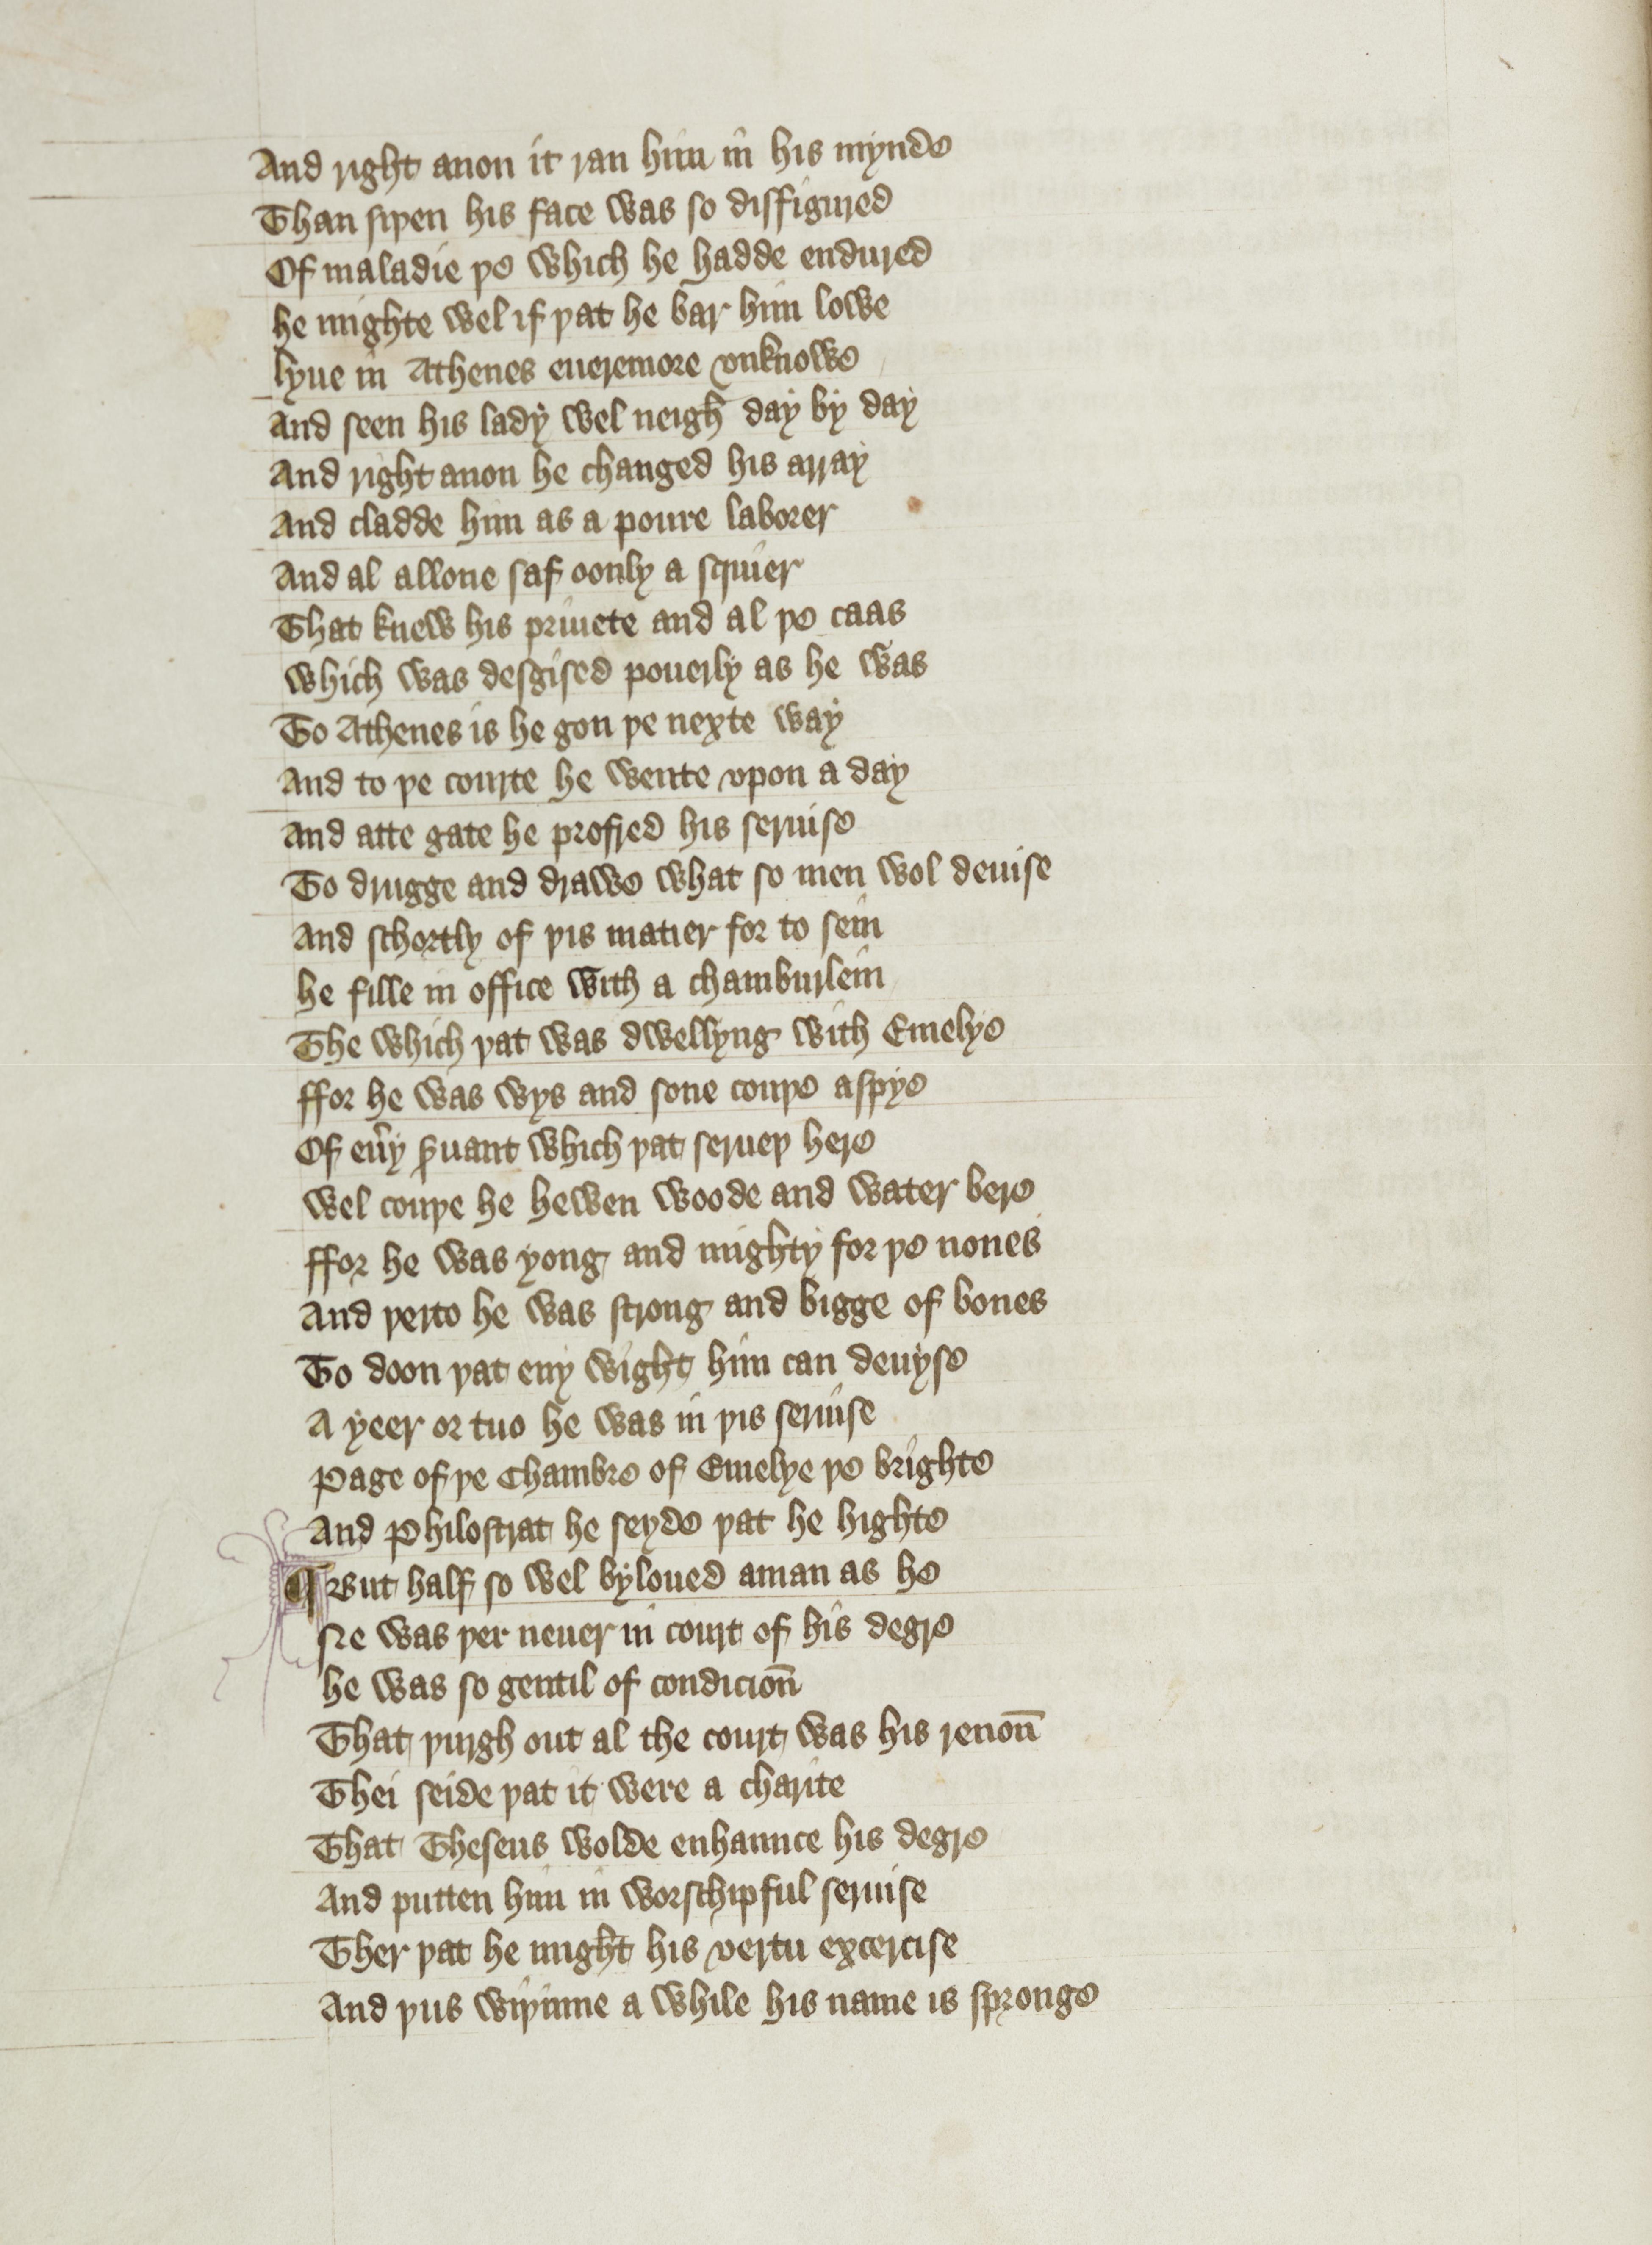 And right anon it ran him in his mynde
Than siþen his face was so disfigured
Of maladie þe which he hadde endured
he mighte wel if þat he bar him lowe
lyue in Athenes eueremore vnknowe
And seen his lady wel neigh day by day
And right anon he changed his array
And cladde him as a poure laborer
And al allone saf oonly a squier
That knew his priuete and al þe caas
which was desgised pouerly as he was
To Athenes is he gon þe nexte way
And to þe courte he wente vpon a day
And atte gate he profred his seruise
To drugge and drawe what so men wol deuise
And schortly of þis matier for to sein
he fille in office with a chamburlein
The which þat was dwellyng with Emelye
ffor he was wys and sone couþe aspye
Of eu͛y ꝑuant which þat serueþ here
wel couþe he hewen woode and water bere
ffor he was yong and mighty for þe nones
And þerto he was strong and bigge of bones
To doon þat eny wight him can deuyse
A yeer or tuo he was in þis seruise
Page of þe Chambre of Emelye þe brighte
And Philostrat he seyde þat he highte
¶ But half so wel byloued aman as he
Ne was þer neuer in court of his degre
he was so gentil of condicion̄
That þurgh out al the court was his renon̄
Thei seide þat it were a charite
That Theseus wolde enhaunce his degre
And putten him in worschipful seruise
Ther þat he might his vertu excercise
And þus wiþinne a while his name is spronge